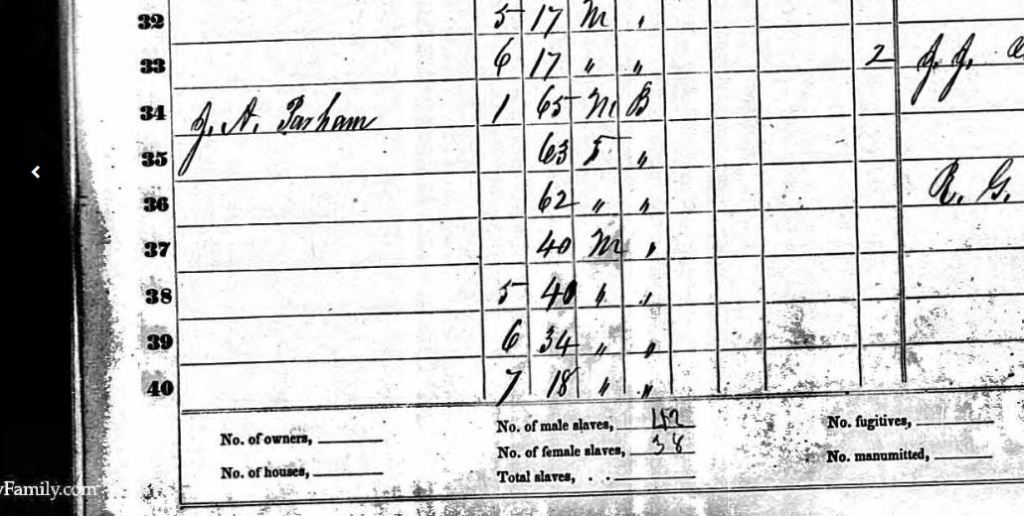 32 5 17 M "
33 6 17 " " 2 J. J.
34 J. A. Parham 1 65 M B
35 63 F "
36 62 " " R. G.
37 40 M "
38 5 40 " "
39 6 34 " "
40 7 18 " "
No. of owners, No. of male slaves, 42 No. fugitives,
No. of houses, No. of female slaves, 38 No. manumitted,
Total slaves, . .
yFamily.com